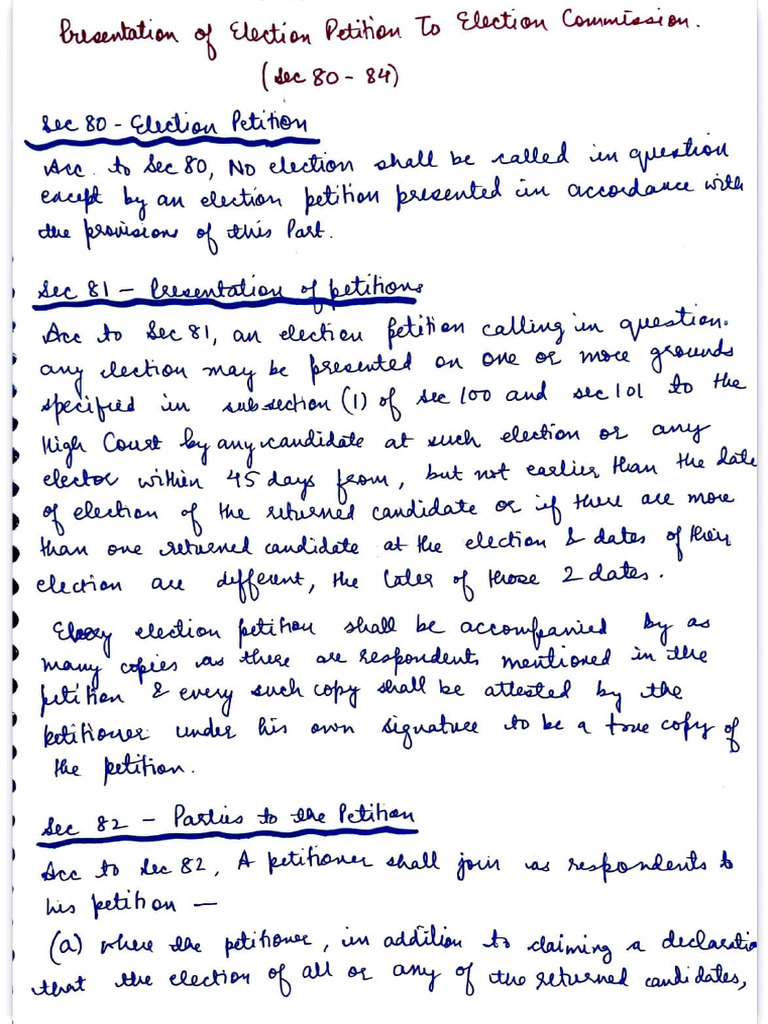 Presentation of Election Petition To Election Commission.
(Sec 80 - 84)
Sec 80 - Election Petition
Acc. to Sec 80, No election shall be called in question
except by an election petition presented in accordance with
the provisions of this Part.
Sec 81 - Presentation of petitions
Acc to Sec 81, an election petition calling in question
any election may be presented on one or more grounds
specified in subsection (1) of sec 100 and sec 101 to the
High Court by any candidate at such election or any
elector within 45 days from, but not earlier than the date
of election of the returned candidate or if there are more
than one returned candidate at the election & dates of their
election are different, the later of those 2 dates.
Every election petition shall be accompanied by as
many copies as there are respondents mentioned in the
petition & every such copy shall be attested by the
petitioner under his own signature to be a true copy of
the petition.
Sec 82 - Parties to the Petition
Acc to Sec 82, A petitioner shall join as respondents to
his petition —
(a) where the petitioner, in addition to claiming a declaratio
that the election of all or any of the returned candidates,